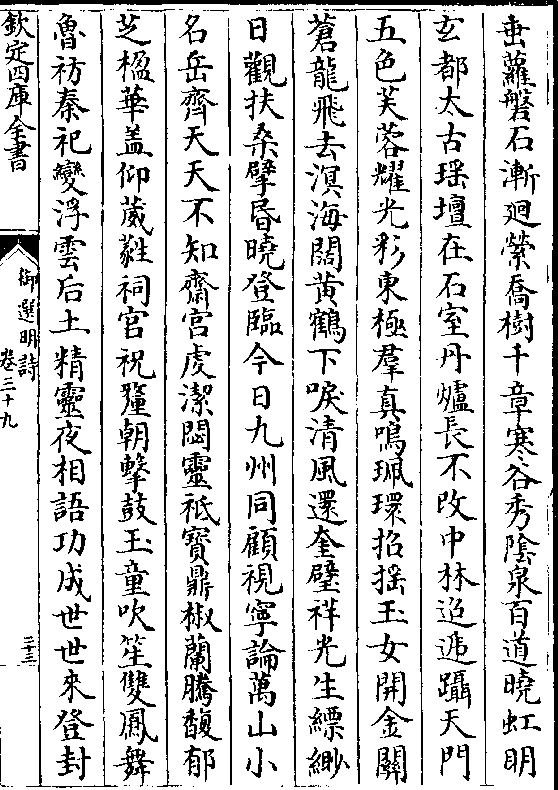 垂蘿磐石漸廻縈喬樹千章寒谷秀陰泉百道曉虹明
玄都太古瑶壇在石室丹爐長不改中林迢遞躡天門
五色芙蓉耀光彩東極羣真鳴珮環招揺玉女開金關
蒼龍飛去溟海闊黄鶴下唳清風還奎璧祥光生縹緲
日觀扶桑擘昏曉登臨今日九州同顧視寧論萬山小
名岳齊天天不知齋宫虔潔閟靈祗寳鼎椒蘭騰馥郁
芝楹華盖仰葳蕤祠官祝釐朝擊鼓玉童吹笙雙鳳舞
魯祊秦祀變浮雲后土精靈夜相語功成世世來登封
欽定四庫全書
御選明詩
卷三十九
三十三